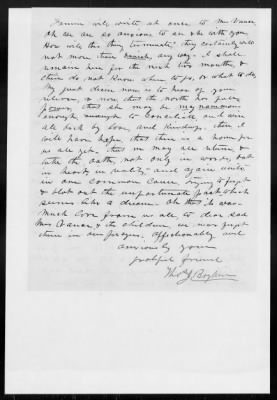 Fannie will write at once to Mrs Vance
Oh we are so anxious to see & be with you
How will this thing terminate, they certainly will
not move their any way - I shall
remain here for the next two months, &
then do not know where to go, or what to do,
My first desire now is to hear of your
release, & now, that the north has full
power, that she may be magnanimous
enough to conciliate, and win
all back by love and kindness, then I
will have hope, that there is a home for
us all yet, that we may all return &
take the oath, not only in words, but
in hearts in reality and again unite
in one common cause, trying to forget
& blot out the unfortunate past, which
seems like a dream - Oh that it was -
Much love from us all to dear sad
Mrs Vance & the children, we never forget
them in our prayers. Affectionately and
anxiously your
faithful friend
Thos J